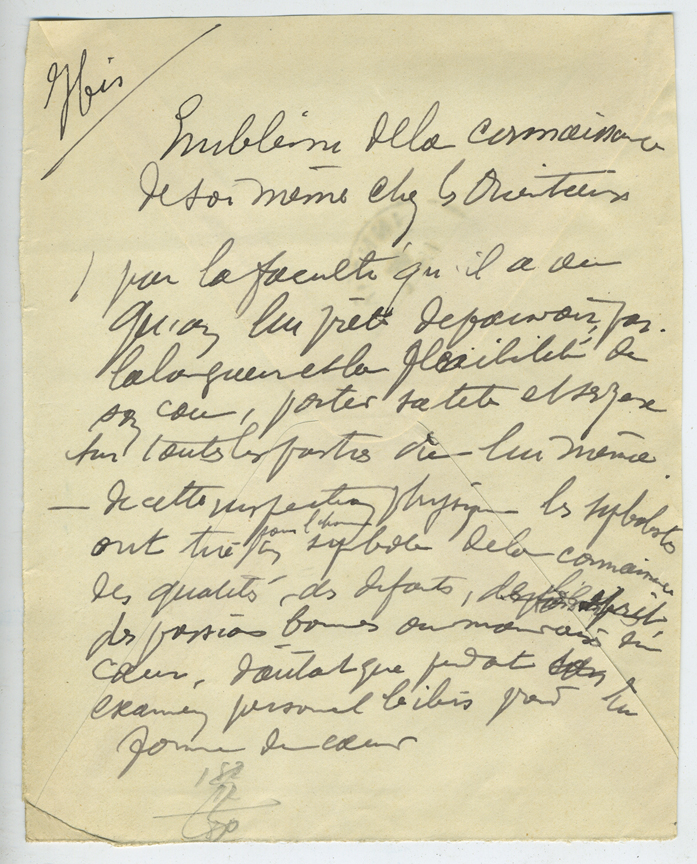 Ibis
Emblème de la connaissance
de soi même chez les Orientaux
par la faculté qu'il a ou
qu'on lui prête de pouvoir, par
la longueur et la flexibilité de
son cou, porter sa tête et ses yeux
sur toutes les parties de lui même
— de cette inspection physique les symbolistes
ont tiré pour l'homme
un symbole de la connaissance
des qualités, des défauts,
des passions bonnes ou mauvaises du
cœur, d'autant que pendant son
examen personnel l'ibis prend la
forme du cœur